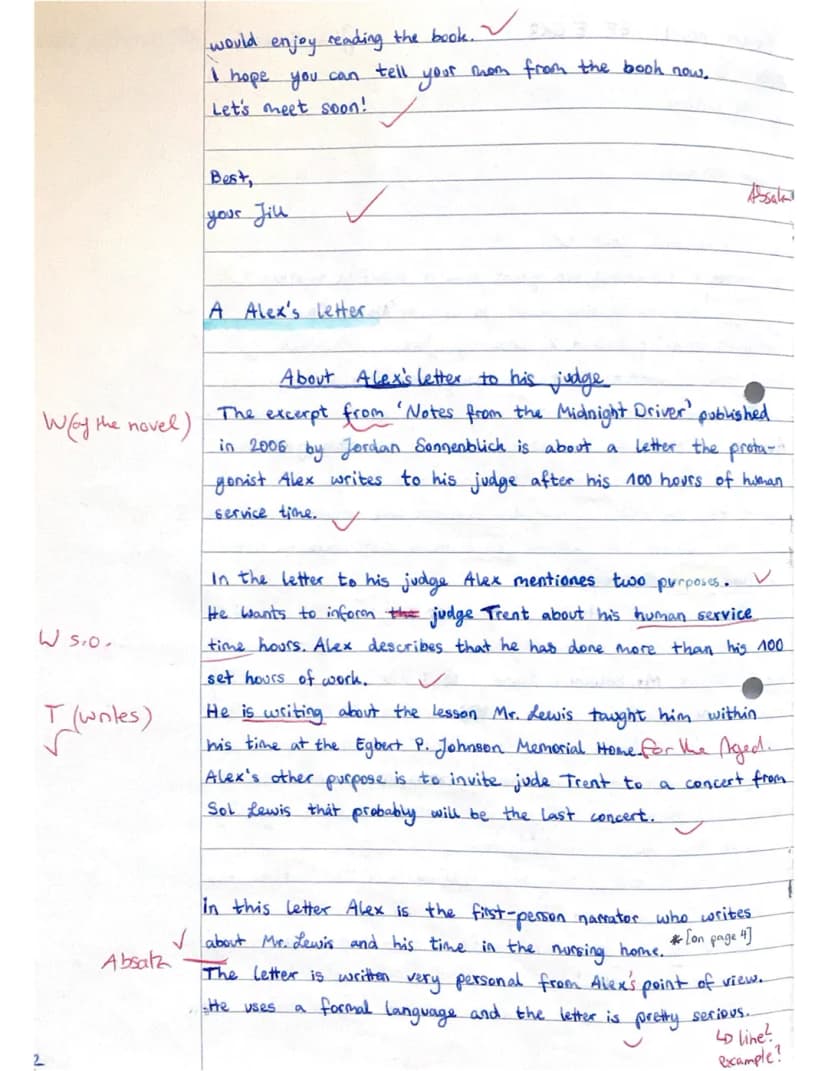 would enjoy reading the book.
I hope you can tell your mom from the book now.
Let's meet soon!
Best,
your Jill
Absatz
A Alex's letter
About Alex's letter to his judge
W (of the novel)
The excerpt from 'Notes from the Midnight Driver' published
in 2006 by Jordan Sonnenblick is about a letter the prota-
gonist Alex writes to his judge after his 100 hours of human
service time.
In the letter to his judge Alex mentiones two purposes.
He wants to inform the judge Trent about his human service
W s.o.
time hours. Alex describes that he has done more than his 100
set hours of work.
T (writes)
He is writing about the lesson Mr. Lewis taught him within
his time at the Egbert P. Johnson Memorial Home for the Aged.
Alex's other purpose is to invite jude Trent to a concert from
Sol Lewis that probably will be the last concert.
In this letter Alex is the first-person narrator who writes
about Mr. Lewis and his time in the nursing home. *[on page 4]
Absatz
The letter is written very personal from Alex's point of view.
He uses a formal language and the letter is pretty serious.
↳ line?
example?
2